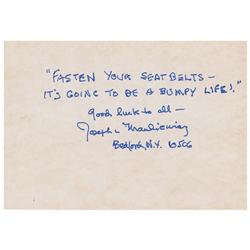 "FASTEN YOUR SEAT BELTS –
IT'S GOING TO BE A BUMPY LIFE!"
Good luck to all —
Joseph L Mankiewicz
Bedford, N.Y. 10506